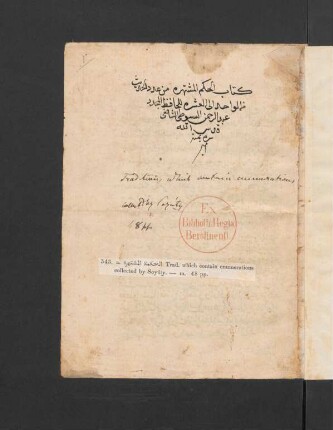 كتاب الحكم المشتهره من عدد الحديث
من الواحد الى العشره للحافظ
عبد الرحمن السيوطي الشافعي
الله
Traditions, which contain enumerations
collected by Soyuty
48 pp.
Ex
Biblioth. Regia
Berolinenſi
543. — Trad. which contain enumerations
collected by Soyúty. — 48 pp.